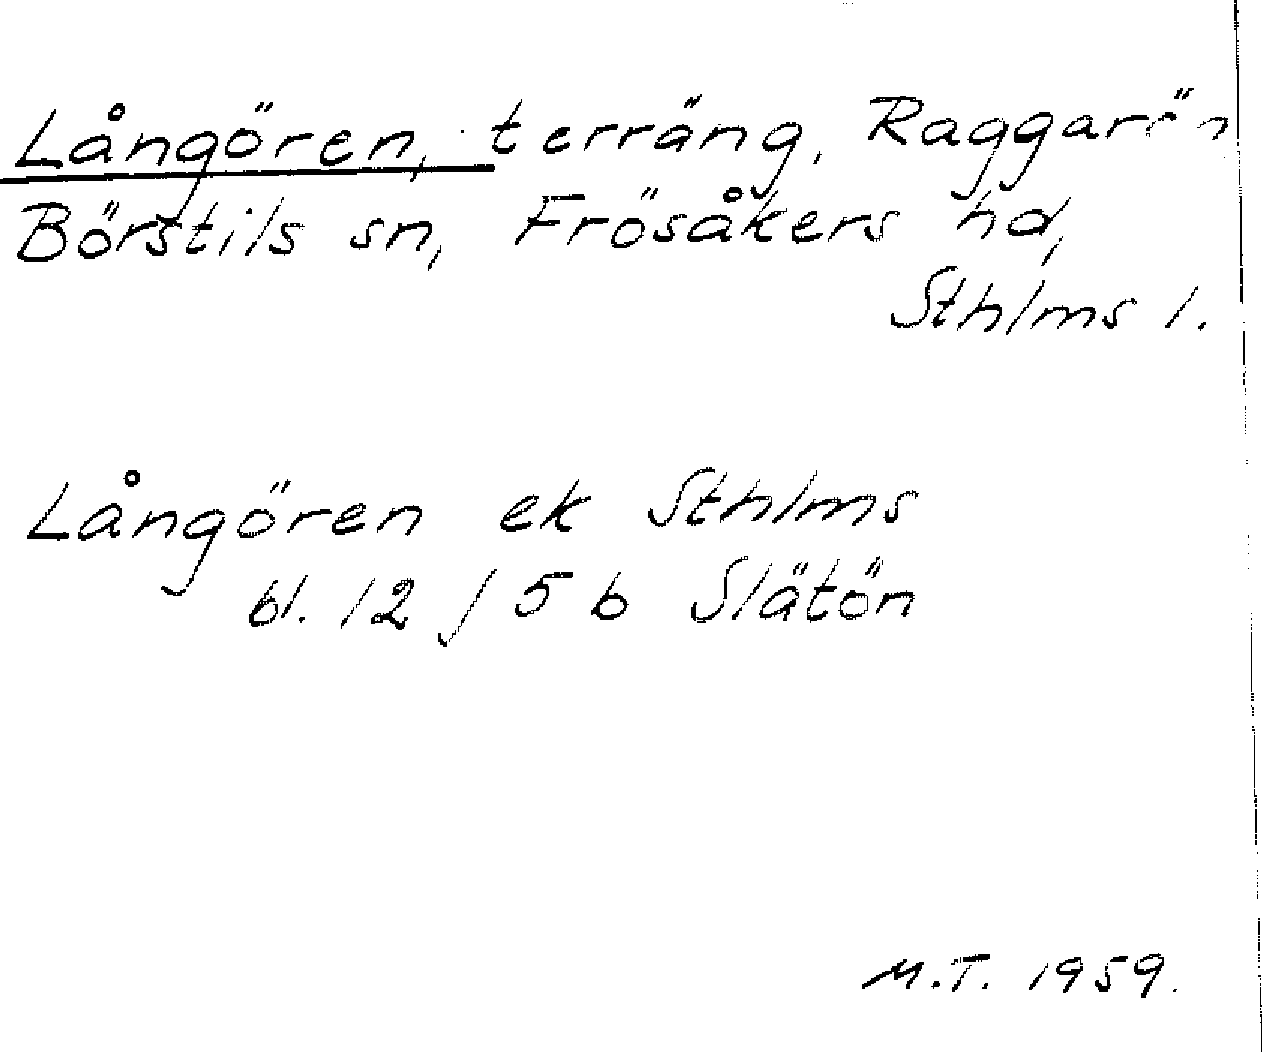 Långören, terräng, Raggarön
Börstils sn, Frösåkers hd,
Sthlms l.
Långören ek Sthlms
bl. 12 / 5 b Slätön
M.T. 1959.